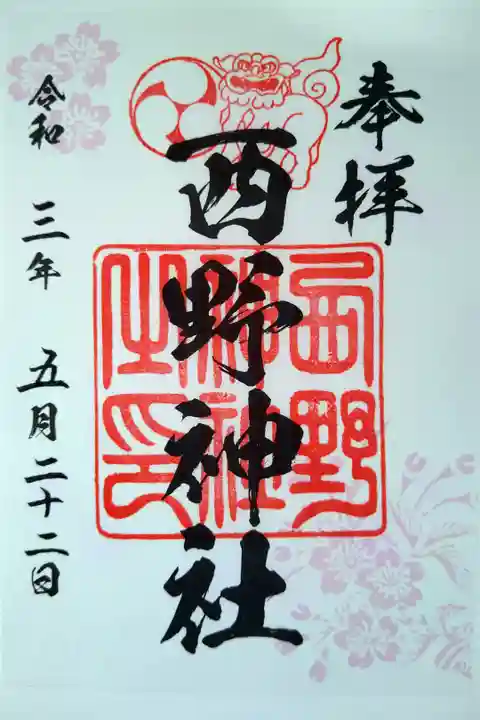 奉拝
西野神社
西野神社之印
令和 三年 五月二十二日